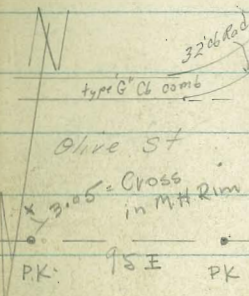 N
32'06 Rad
type "G" Cb comb
Olive St
3.05 = Cross
in M.H Rim
P.K.
PK